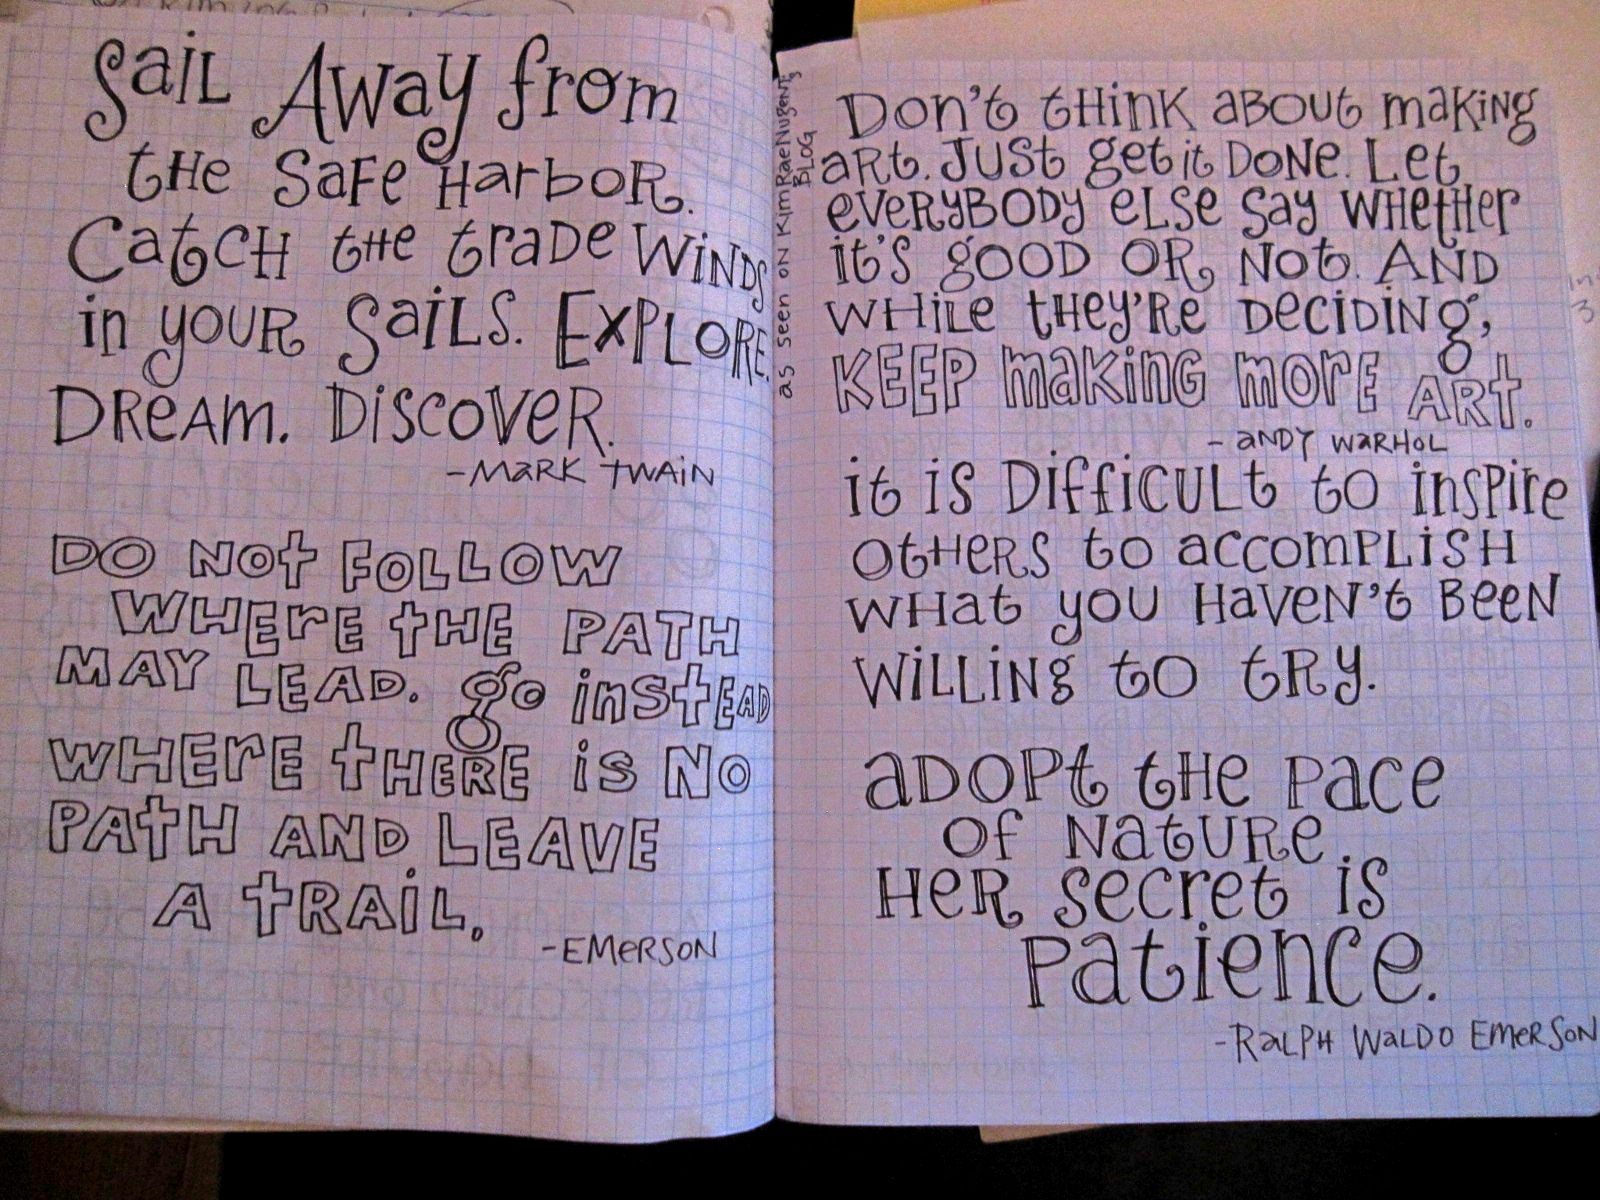 Sail Away from
the Safe Harbor.
Catch the trade winds
in your Sails. Explore.
Dream. Discover.
-Mark Twain
Do not follow
where the path
may lead. go instead
where there is no
path and leave
a trail.
-Emerson
as seen on Kim Rae Nugent's
Blog
Don't think about making
art. Just get it done. Let
everybody else say whether
it's good or not. And
while they're deciding,
keep making more art.
- Andy Warhol
it is difficult to inspire
others to accomplish
what you haven't been
willing to try.
adopt the pace
of nature
Her secret is
Patience.
-Ralph Waldo Emerson